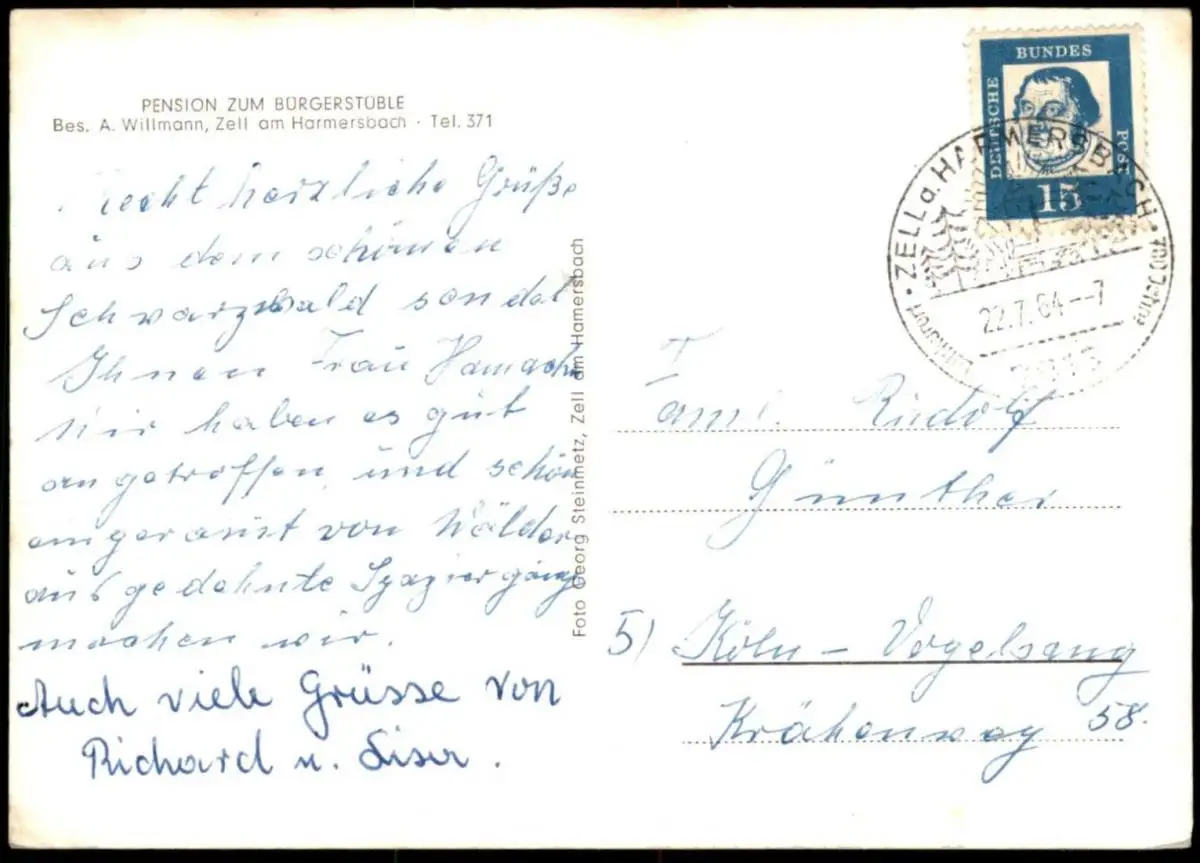 PENSION ZUM BÜRGERSTÜBLE
Bes. A. Willmann, Zell am Harmersbach · Tel. 371
Recht herzliche Grüße
aus dem schönen
Schwarzwald sendet
Ihnen Frau
Wir haben es gut
angetroffen, und schön
von Wälder
ausgedehnte Spaziergänge
machen wir.
Auch viele Grüsse von
Richard u.
Foto Georg Steinmetz, Zell am Hamersbach
DEUTSCHE BUNDES POST
15
ZELL a. HARMERSBACH
700 Jahre
22.7.64--7
Fam. Rudolf
Günther
5) Köln - Vogelsang
Krähenweg 58.